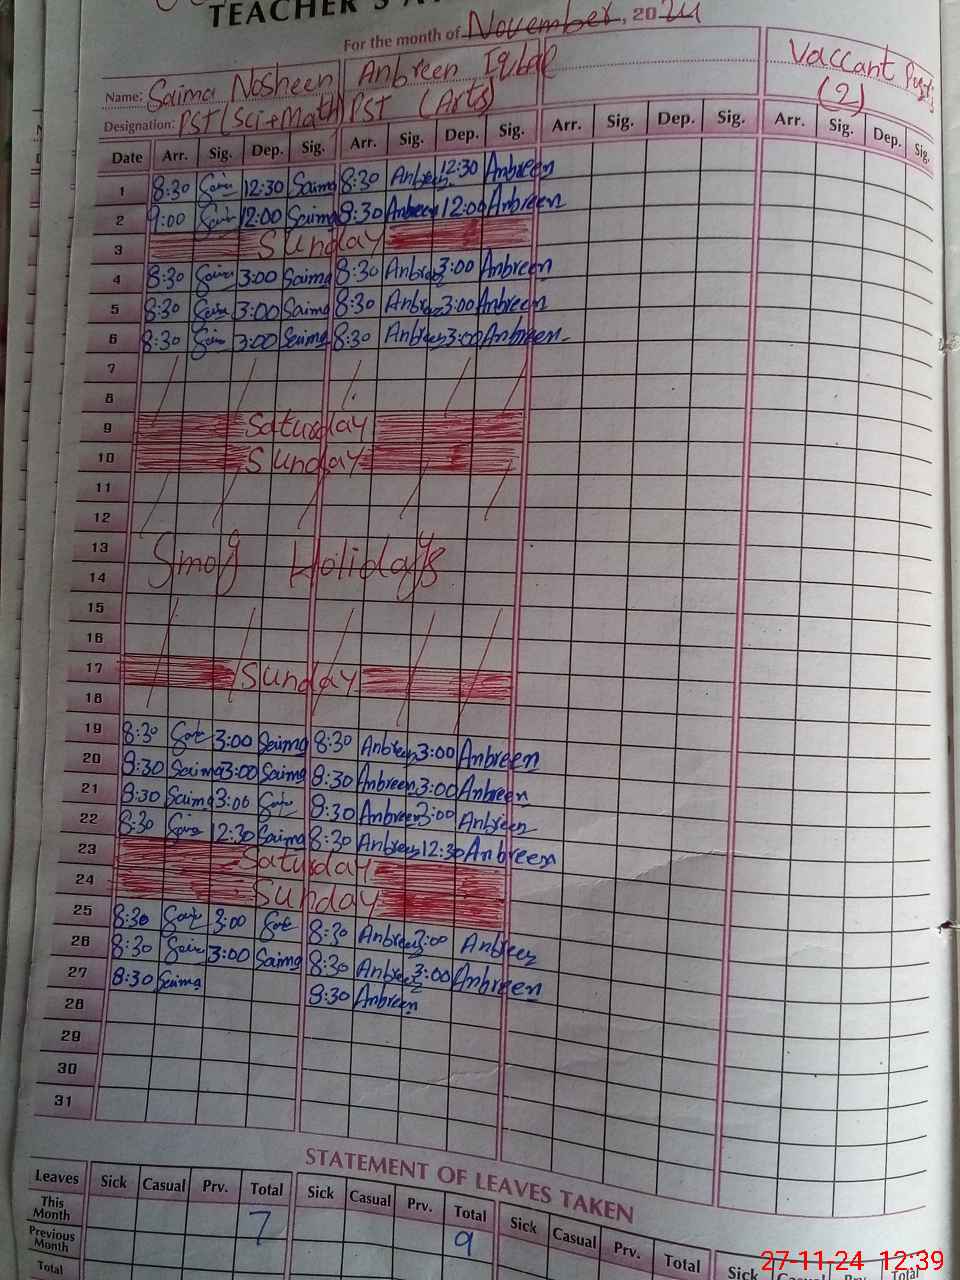 TEACHER'S
For the month of November, 2024
Name: Saima Nosheen Anbreen Iqbal Vaccant Posts
Designation: PST(Sci+Math) PST (Arts) (2)
Date Arr. Sig. Dep. Sig. Arr. Sig. Dep. Sig. Arr. Sig. Dep. Sig. Arr. Sig. Dep. Sig.
1 8:30 Saima 12:30 Saima 8:30 Anbreen 12:30 Anbreen
2 9:00 Saima 12:00 Saima 8:30 Anbreen 12:00 Anbreen
3 Sunday
4 8:30 Saima 3:00 Saima 8:30 Anbreen 3:00 Anbreen
5 8:30 Saima 3:00 Saima 8:30 Anbreen 3:00 Anbreen
6 8:30 Saima 3:00 Saima 8:30 Anbreen 3:00 Anbreen
7
8
9 Saturday
10 Sunday
11
12
13 Smog Holidays
14
15
16
17 Sunday
18
19 8:30 3:00 Saima 8:30 Anbreen 3:00 Anbreen
20 8:30 Saima 3:00 Saima 8:30 Anbreen 3:00 Anbreen
21 8:30 Saima 3:00 8:30 Anbreen 3:00 Anbreen
22 8:30 Saima 12:30 Saima 8:30 Anbreen 12:30 Anbreen
23 Saturday
24 Sunday
25 8:30 3:00 8:30 Anbreen 3:00 Anbreen
26 8:30 Saima 3:00 Saima 8:30 Anbreen 3:00 Anbreen
27 8:30 Saima 8:30 Anbreen
28
29
30
31
STATEMENT OF LEAVES TAKEN
Leaves Sick Casual Prv. Total Sick Casual Prv. Total Sick Casual Prv. Total Sick Casual Prv. Total
This Month 7 9
Previous Month
Total
27-11-24 12:39